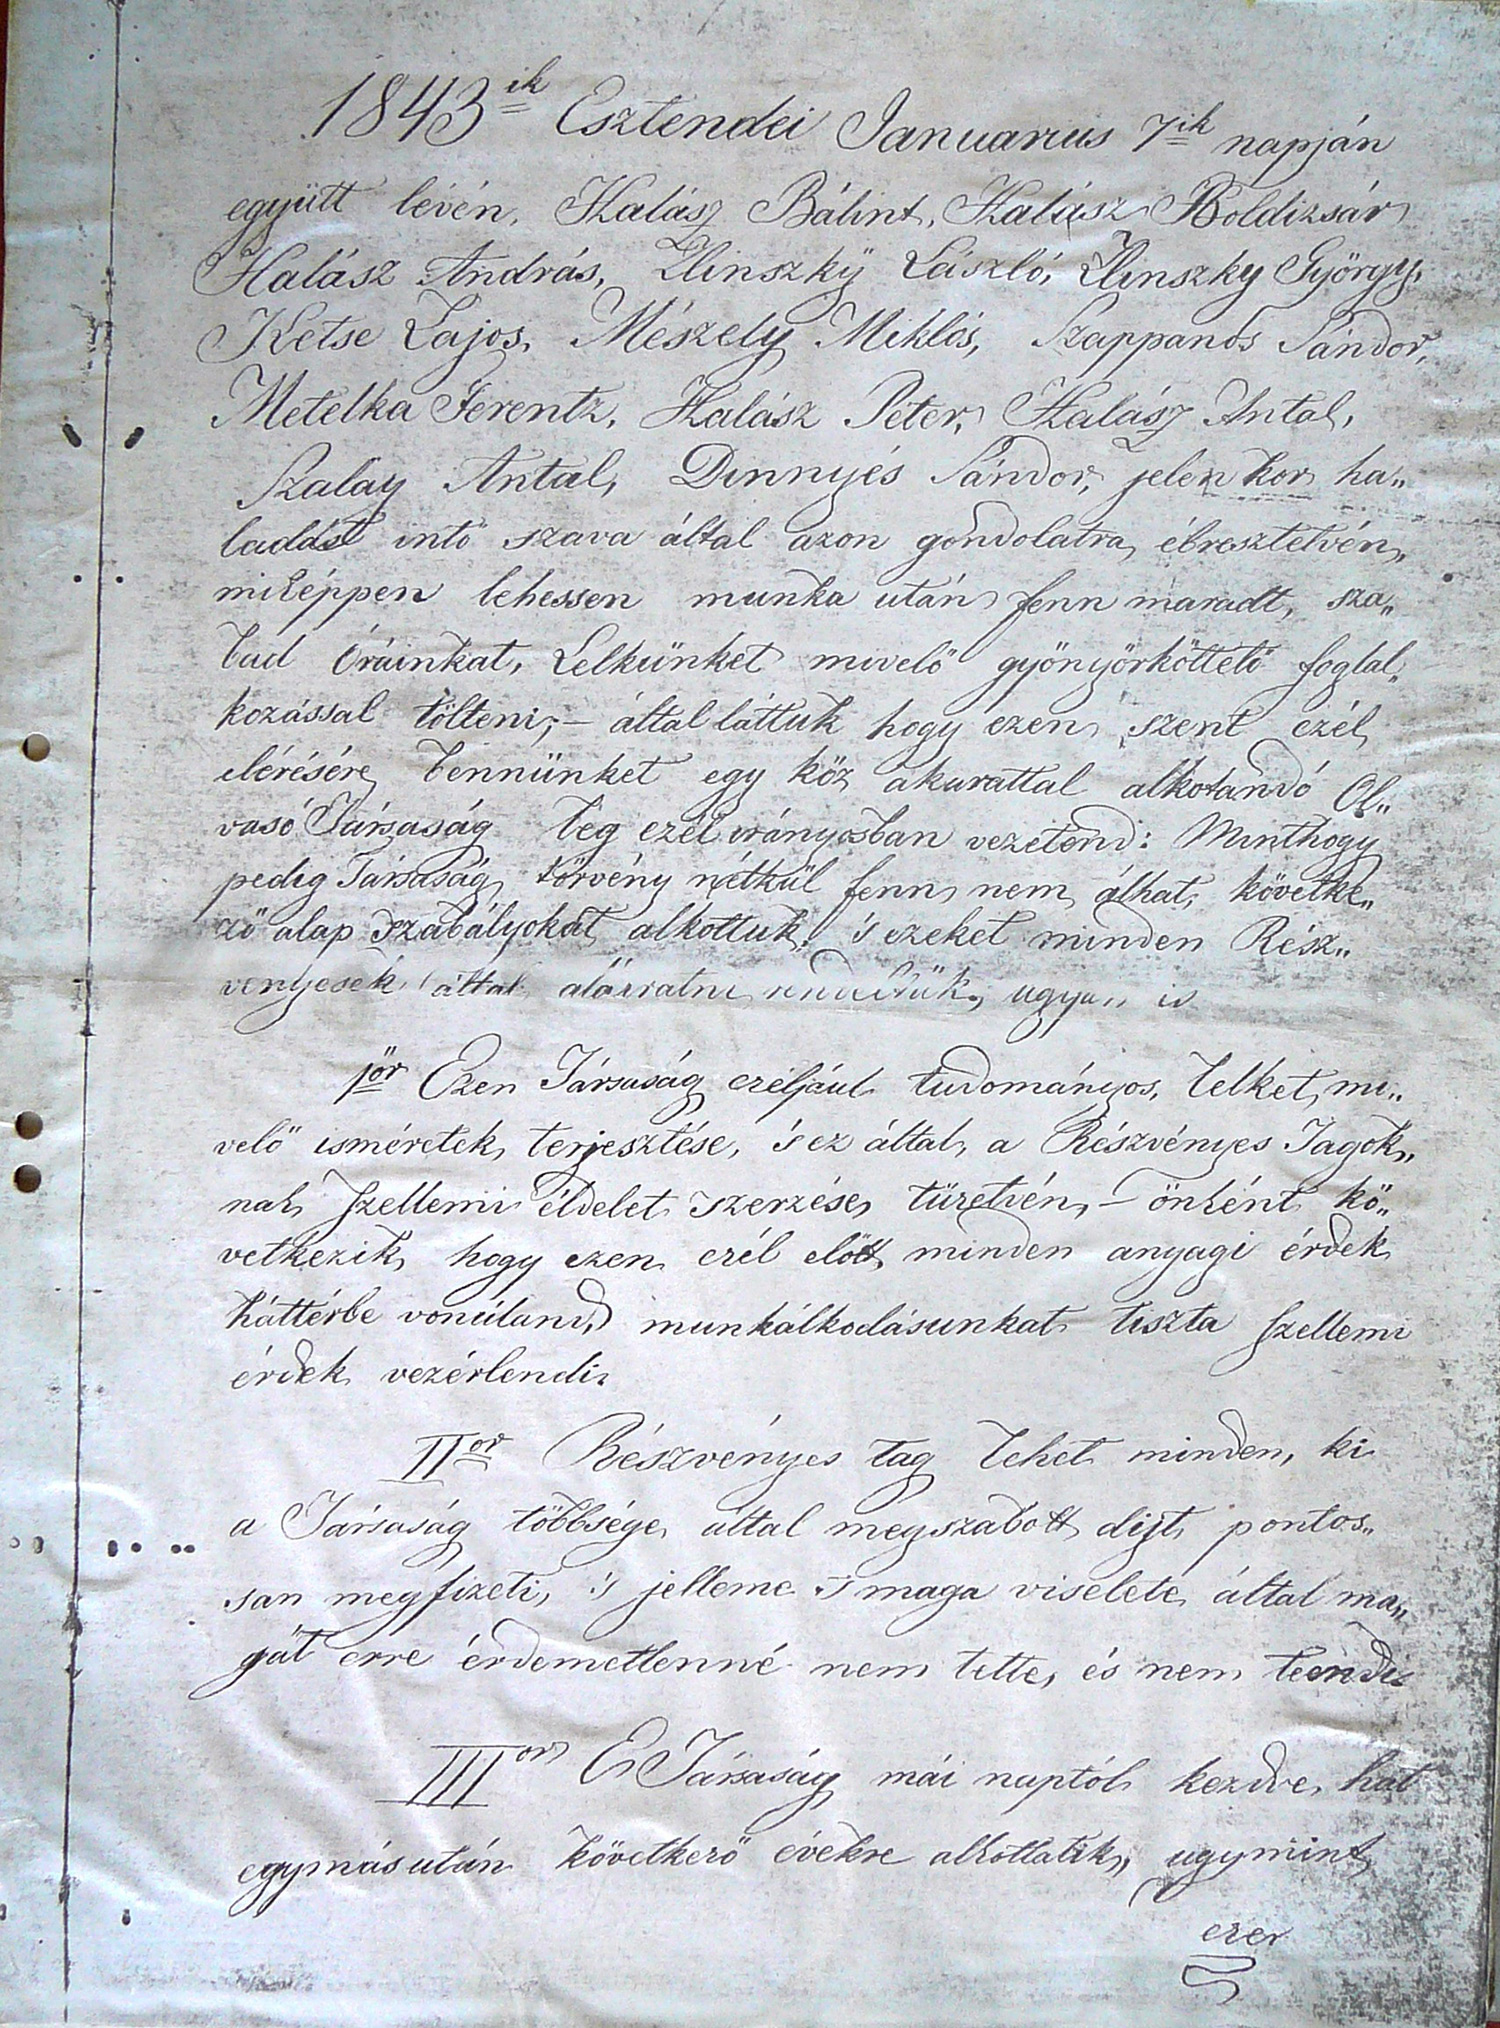 1843ik Esztendei Januarius 7ik napján
együtt lévén, Halász Bálint, Halász Boldizsár
Halász András, Ilinszky László, Ilinszky György,
Ketse Lajos, Mészely Miklós, Szappanos Sándor,
Metelka Ferentz, Halász Péter, Halász Antal,
Szalay Antal, Dinnyés Sándor, jelen kor ha„
ladást intő szava által azon gondolatra ébresztetvén,
miképpen lehessen munka után fenn maradt, sza„
bad óráinkat, Lelkünket mivelő gyönyörköttető foglal„
kozással tölteni; – által láttuk hogy ezen szent czél
elérésére bennünket egy köz akarattal alkotandó Ol„
vasó Társaság leg czél irányosban vezetend: Minthogy
pedig Társaság törvény nélkül fenn nem álhat, követke„
ző alap szabályokat alkottuk, 's ezeket minden Rész„
venyesek által aláiratni rendeltük, ugyan is
1ör Ezen Társaság czéljául tudományos, lelket mi„
velő isméretek terjesztése, 's ez által, a Részvényes Tagok„
nak szellemi éldelet szerzése tüzetvén, – önként kö„
vetkezik, hogy ezen czél előtt minden anyagi érdek
háttérbe vonúland, munkálkodásunkat tiszta szellemi
érdek vezérlendi.
IIor Részvényes tag lehet minden, ki
a Társaság többsége által megszabott dijt pontos„
san megfizeti, 's jelleme 's maga viselete által ma„
gát erre érdemetlenné nem tette, és nem teendi
IIIor E Társaság mái naptól kezdve, hat
egymásután következő évekre alkottatik, ugymint
ezer